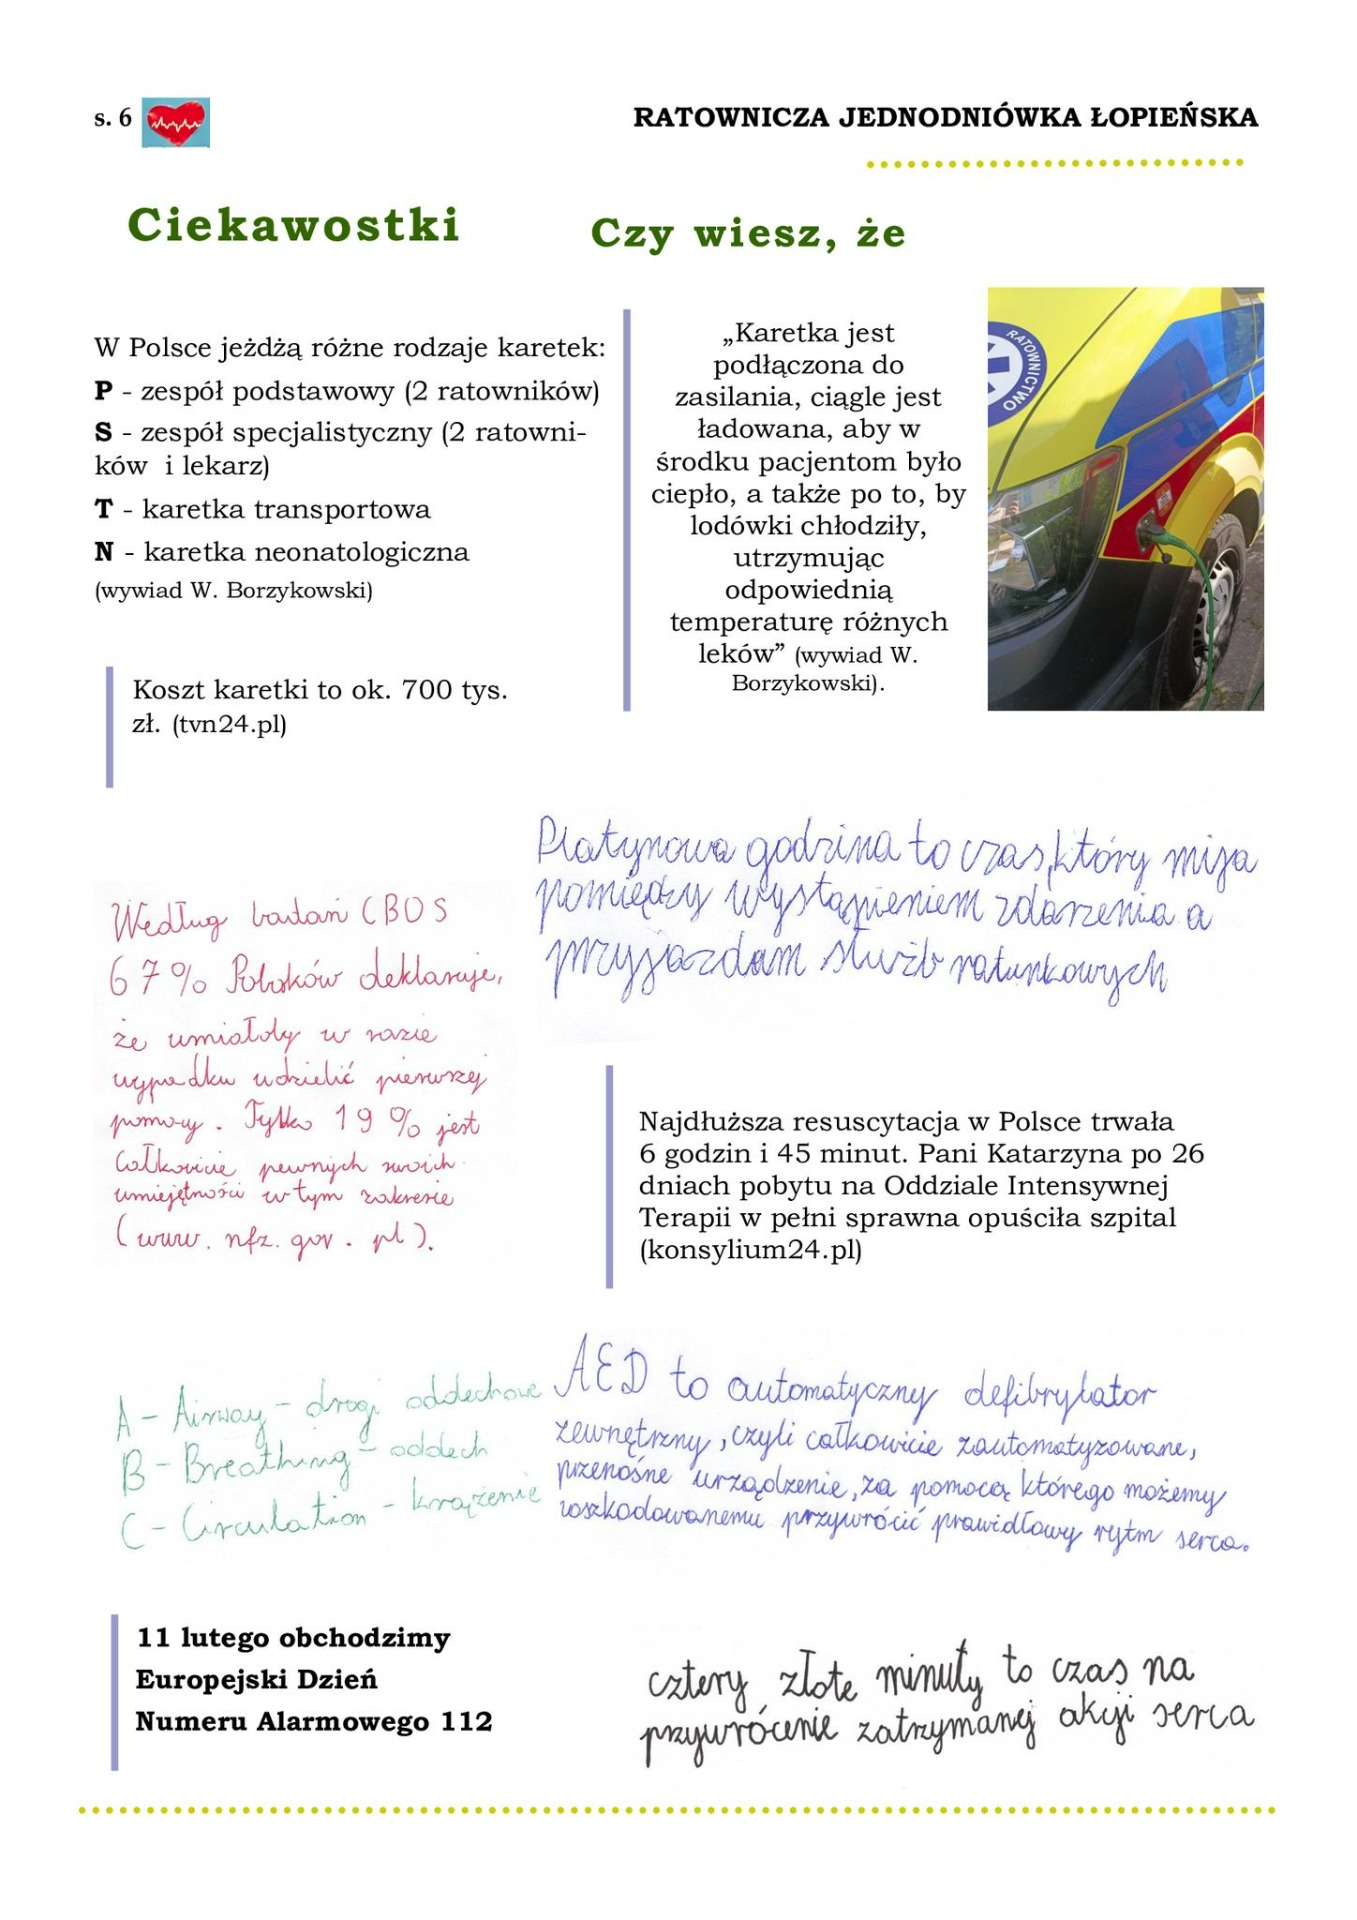 s. 6
RATOWNICZA JEDNODNIÓWKA ŁOPIEŃSKA
Ciekawostki
Czy wiesz, że
W Polsce jeżdżą różne rodzaje karetek:
P - zespół podstawowy (2 ratowników)
S - zespół specjalistyczny (2 ratowni-
ków i lekarz)
T - karetka transportowa
N - karetka neonatologiczna
(wywiad W. Borzykowski)
Koszt karetki to ok. 700 tys.
zł. (tvn24.pl)
„Karetka jest
podłączona do
zasilania, ciągle jest
ładowana, aby w
środku pacjentom było
ciepło, a także po to, by
lodówki chłodziły,
utrzymując
odpowiednią
temperaturę różnych
leków” (wywiad W.
Borzykowski).
RATOWNICTWO
Platynowa godzina to czas, który mija
pomiędzy wystąpieniem zdarzenia a
przyjazdam służb ratunkowych
Według badań CBOS
67% Polaków deklaruje,
że umiałoby w razie
wypadku udzielić pierwszej
pomocy. Tylko 19% jest
całkowicie pewnych swoich
umiejętności w tym zakresie
(www.nfz.gov.pl).
Najdłuższa resuscytacja w Polsce trwała
6 godzin i 45 minut. Pani Katarzyna po 26
dniach pobytu na Oddziale Intensywnej
Terapii w pełni sprawna opuściła szpital
(konsylium24.pl)
A - Airway - drogi oddechowe
B - Breathing - oddech
C - Circulation - krążenie
AED to automatyczny defibrylator
zewnętrzny, czyli całkowicie zautomatyzowane,
przenośne urządzenie, za pomocą którego możemy
poszkodowanemu przywrócić prawidłowy rytm serca.
11 lutego obchodzimy
Europejski Dzień
Numeru Alarmowego 112
cztery złote minuty to czas na
przywrócenie zatrzymanej akcji serca